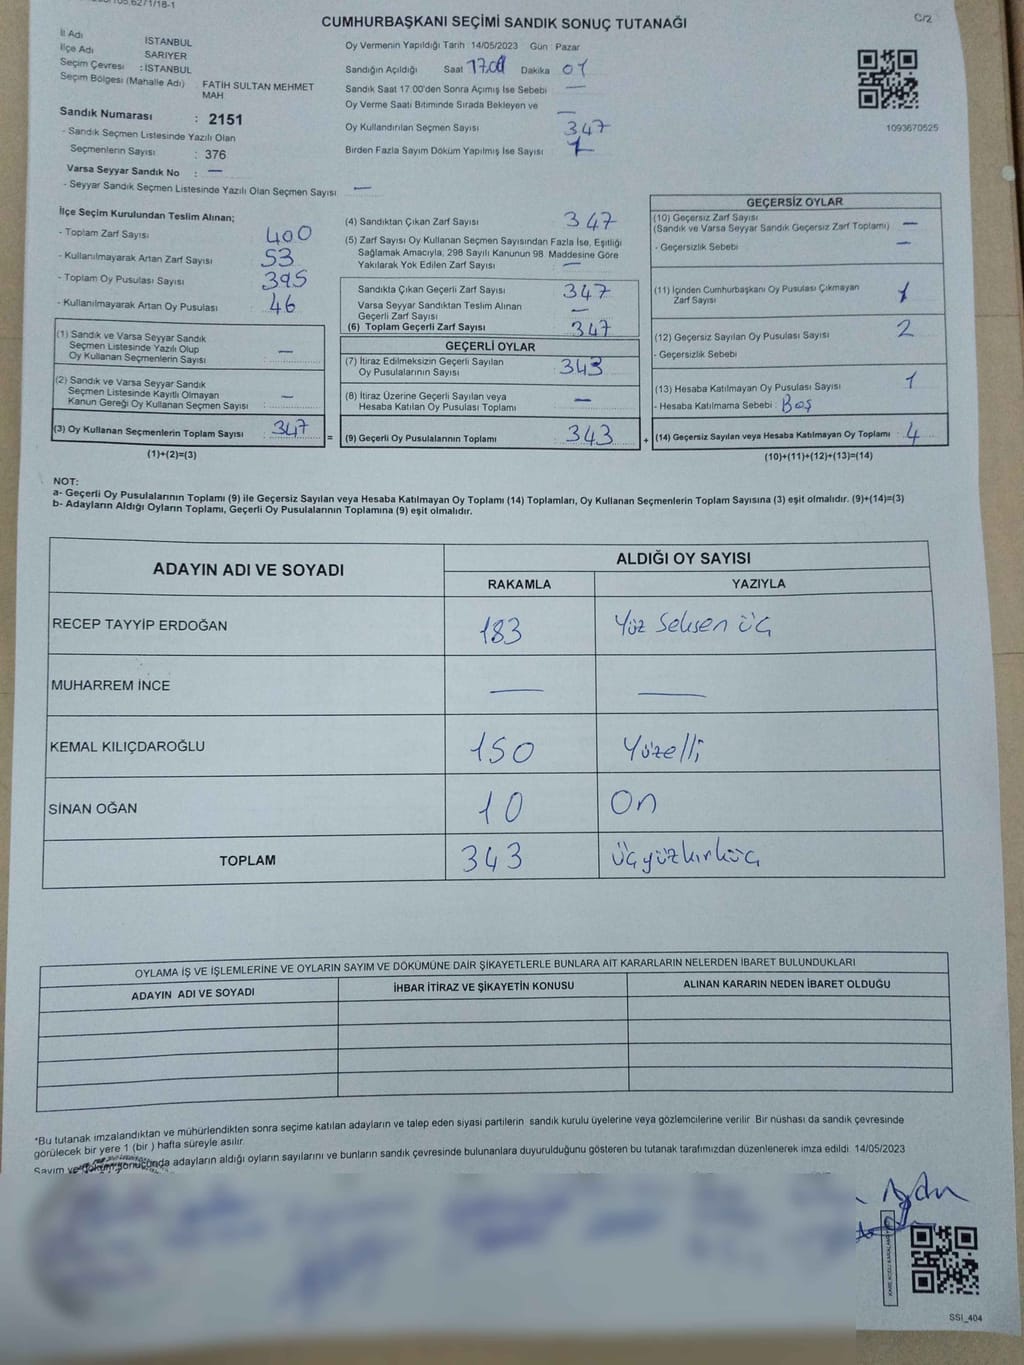 CUMHURBAŞKANI SEÇİMİ SANDIK SONUÇ TUTANAĞI
C/2
İl Adı İSTANBUL
İlçe Adı SARIYER
Seçim Çevresi : İSTANBUL
Seçim Bölgesi (Mahalle Adı) FATİH SULTAN MEHMET
MAH
Sandık Numarası : 2151
- Sandık Seçmen Listesinde Yazılı Olan
Seçmenlerin Sayısı : 376
Varsa Seyyar Sandık No : —
- Seyyar Sandık Seçmen Listesinde Yazılı Olan Seçmen Sayısı —
Oy Vermenin Yapıldığı Tarih 14/05/2023 Gün Pazar
Sandığın Açıldığı Saat Dakika 01
Sandık Saat 17 00'den Sonra Açımış İse Sebebi —
Oy Verme Saati Bitiminde Sırada Bekleyen ve —
Oy Kullandırılan Seçmen Sayısı 347
Birden Fazla Sayım Döküm Yapılmış İse Sayısı 1
1093670525
İlçe Seçim Kurulundan Teslim Alınan;
- Toplam Zarf Sayısı 400
- Kullanılmayarak Artan Zarf Sayısı 53
- Toplam Oy Pusulası Sayısı 395
- Kullanılmayarak Artan Oy Pusulası 46
(1) Sandık ve Varsa Seyyar Sandık
Seçmen Listesinde Yazılı Olup
Oy Kullanan Seçmenlerin Sayısı —
(2) Sandık ve Varsa Seyyar Sandık
Seçmen Listesinde Kayıtlı Olmayan
Kanun Gereği Oy Kullanan Seçmen Sayısı —
(3) Oy Kullanan Seçmenlerin Toplam Sayısı 347 =
(1)+(2)=(3)
(4) Sandıktan Çıkan Zarf Sayısı 347
(5) Zarf Sayısı Oy Kullanan Seçmen Sayısından Fazla İse, Eşitliği
Sağlamak Amacıyla, 298 Sayılı Kanunun 98 Maddesine Göre
Yakılarak Yok Edilen Zarf Sayısı —
Sandıkta Çıkan Geçerli Zarf Sayısı 347
Varsa Seyyar Sandıktan Teslim Alınan
Geçerli Zarf Sayısı —
(6) Toplam Geçerli Zarf Sayısı 347
GEÇERLİ OYLAR
(7) İtiraz Edilmeksizin Geçerli Sayılan
Oy Pusulalarının Sayısı 343
(8) İtiraz Üzerine Geçerli Sayılan veya
Hesaba Katılan Oy Pusulası Toplamı —
(9) Geçerli Oy Pusulalarının Toplamı 343 +
GEÇERSİZ OYLAR
(10) Geçersiz Zarf Sayısı
(Sandık ve Varsa Seyyar Sandık Geçersiz Zarf Toplamı) —
- Geçersizlik Sebebi —
(11) İçinden Cumhurbaşkanı Oy Pusulası Çıkmayan
Zarf Sayısı 1
(12) Geçersiz Sayılan Oy Pusulası Sayısı 2
- Geçersizlik Sebebi
(13) Hesaba Katılmayan Oy Pusulası Sayısı 1
- Hesaba Katılmama Sebebi : Boş
(14) Geçersiz Sayılan veya Hesaba Katılmayan Oy Toplamı 4
(10)+(11)+(12)+(13)=(14)
NOT:
a- Geçerli Oy Pusulalarının Toplamı (9) ile Geçersiz Sayılan veya Hesaba Katılmayan Oy Toplamı (14) Toplamları, Oy Kullanan Seçmenlerin Toplam Sayısına (3) eşit olmalıdır. (9)+(14)=(3)
b- Adayların Aldığı Oyların Toplamı, Geçerli Oy Pusulalarının Toplamına (9) eşit olmalıdır.
ADAYIN ADI VE SOYADI ALDIĞI OY SAYISI
RAKAMLA YAZIYLA
RECEP TAYYİP ERDOĞAN 183 Yüz Seksen üç
MUHARREM İNCE — —
KEMAL KILIÇDAROĞLU 150 Yüzelli
SİNAN OĞAN 10 On
TOPLAM 343 üçyüzkırküç
OYLAMA İŞ VE İŞLEMLERİNE VE OYLARIN SAYIM VE DÖKÜMÜNE DAİR ŞİKAYETLERLE BUNLARA AİT KARARLARIN NELERDEN İBARET BULUNDUKLARI
ADAYIN ADI VE SOYADI İHBAR İTİRAZ VE ŞİKAYETİN KONUSU ALINAN KARARIN NEDEN İBARET OLDUĞU
*Bu tutanak imzalandıktan ve mühürlendikten sonra seçime katılan adayların ve talep eden siyasi partilerin sandık kurulu üyelerine veya gözlemcilerine verilir Bir nüshası da sandık çevresinde
görülecek bir yere 1 (bir ) hafta süreyle asılır.
Sayım ve adayların aldığı oyların sayılarını ve bunların sandık çevresinde bulunanlara duyurulduğunu gösteren bu tutanak tarafımızdan düzenlenerek imza edildi. 14/05/2023
SSI_404